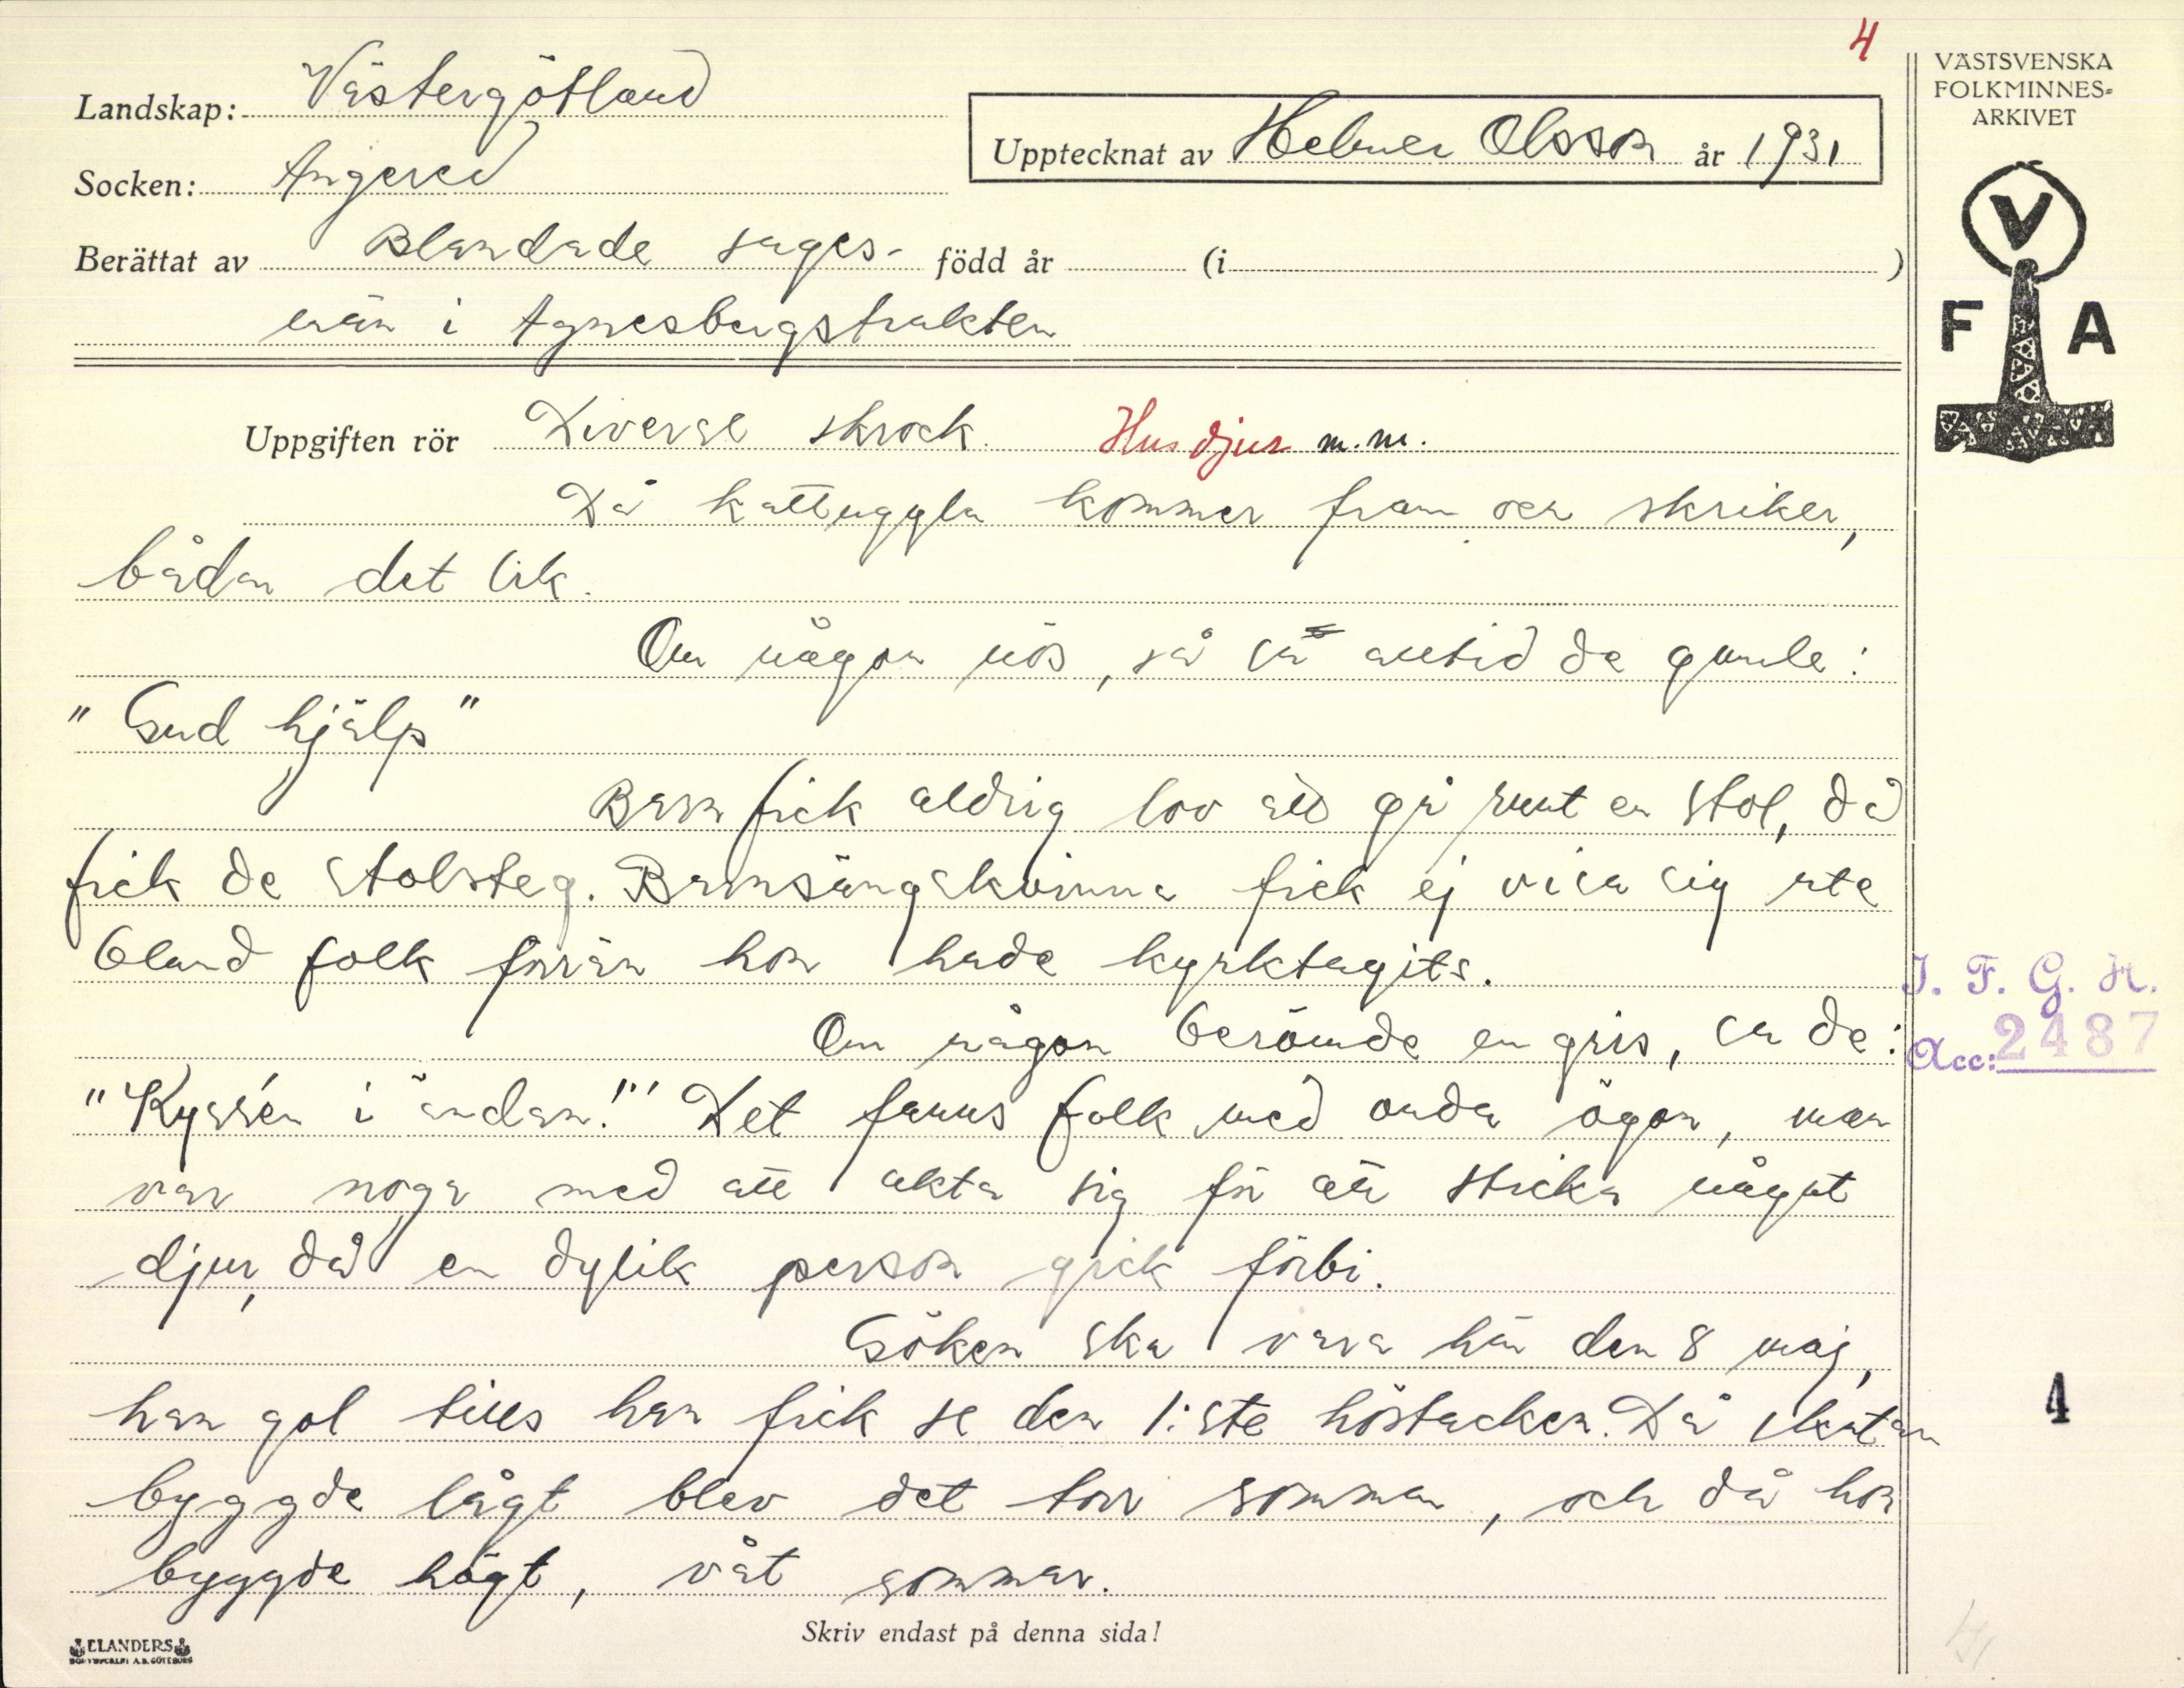 4
Landskap: Västergötland
Socken: Angered
Upptecknat av Helmer Olsson år 1931
Berättat av Blandade sages- född år (i )
män i Agnesbergstrakten
VÄSTSVENSKA
FOLKMINNES-
ARKIVET
V
F A
Uppgiften rör Diverse skrock. Husdjur m.m.
Då kattuggla kommer fram och skriker,
bådar det lik.
Om någon nös, så sa alltid de gamle:
"Gud hjälp"
Barn fick aldrig lov att gå runt en stol, då
fick de stolsteg. Barnsängskvinna fick ej visa sig ute
bland folk förrän hon hade kyrktagits.
Om någon berömde en gris, sa de:
"Kyss'en i ändan!"' Det fanns folk med onda ögon, man
var noga med att akta sig för att sticka något
djur, då en dylik person gick förbi.
Göken ska vara här den 8 maj,
han gol tills han fick se den 1:ste höstacken. Då skatan
byggde lågt blev det torr sommar, och då hon
byggde högt, våt sommar.
I. F. G. H.
Acc: 2487
4
Skriv endast på denna sida!
ELANDERS